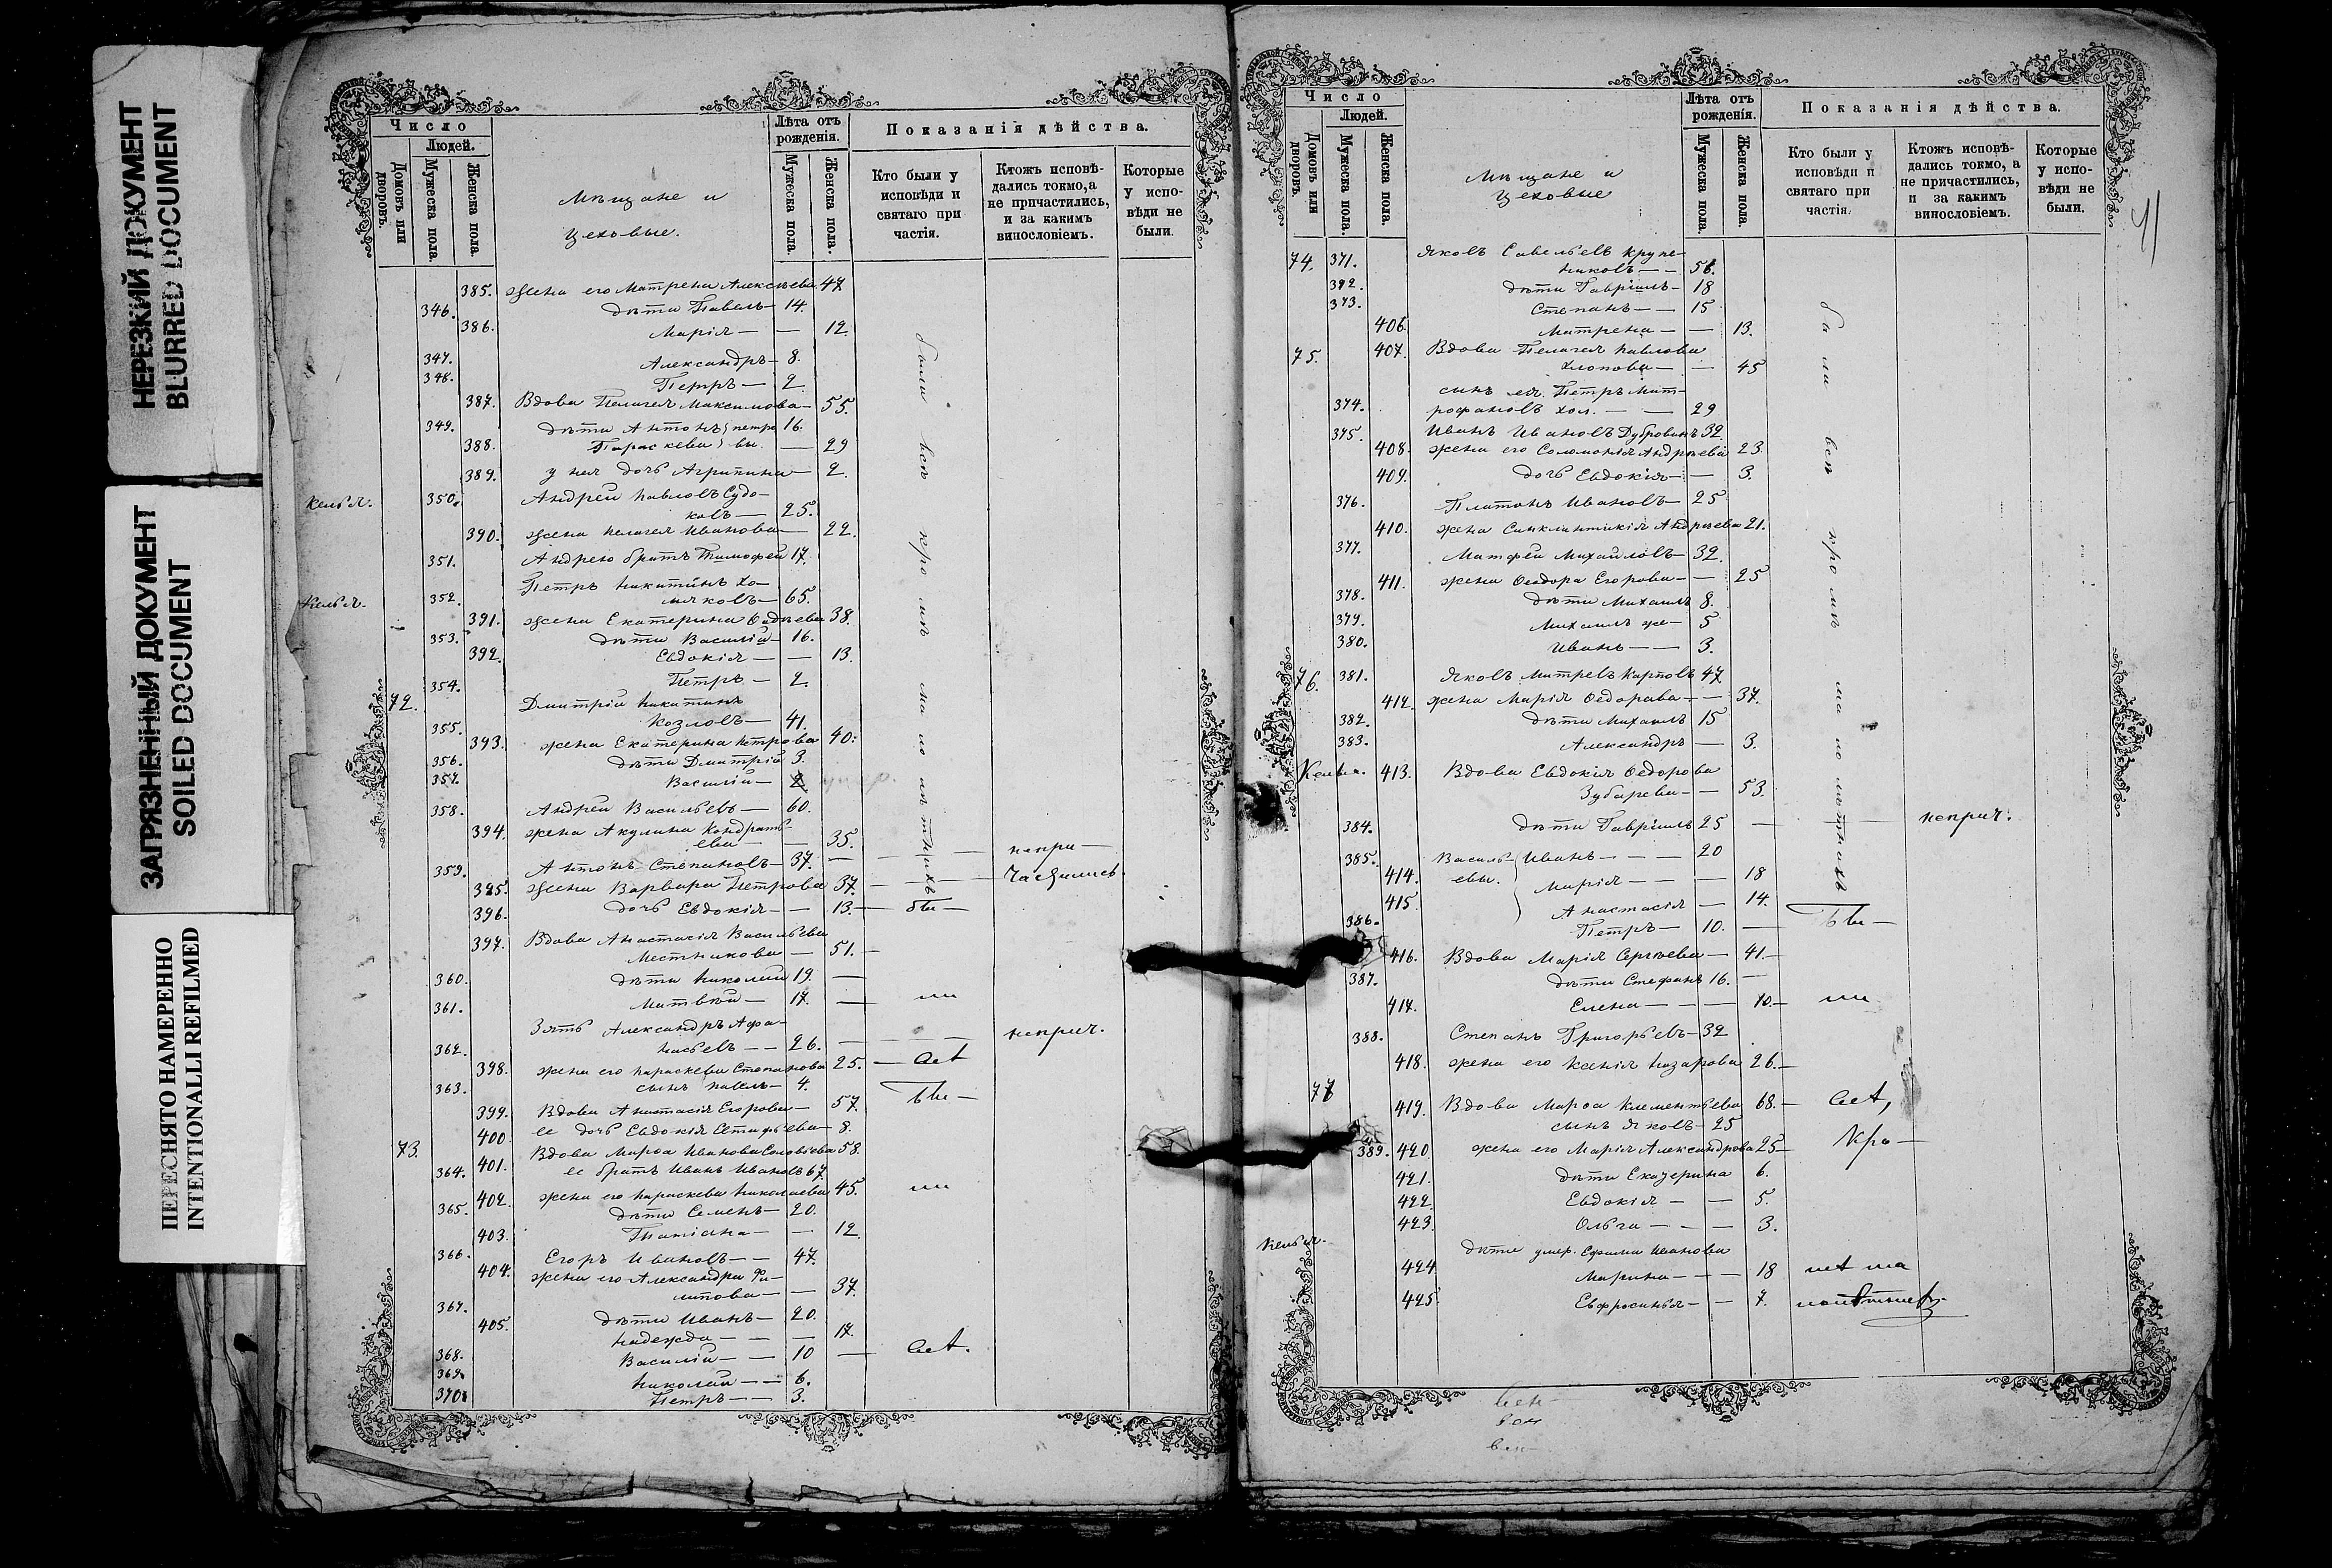 НЕРЕЗКИЙ ДОКУМЕНТ
BLURRED DOCUMENT
ЗАГРЯЗНЕННЫЙ ДОКУМЕНТ
SOILED DOCUMENT
ПЕРЕСНЯТО НАМЕРЕННО
INTENTIONALLI REFILMED
Число
Людей.
Домовъ или дворовъ.
Мужеска пола.
Женска пола.
Мѣщане и
Цеховые.
Лѣта отъ рожденія.
Мужеска пола.
Женска пола.
Показанія дѣйства.
Кто были у исповѣди и святаго при частія.
Ктожъ исповѣ-дались токмо, а не причастились, и за какимъ винословіемъ.
Которые у испо-вѣди не были.
385. жена его Матрена Алексѣева 47
346. дѣти Павелъ — 14.
386. Марія — — 12.
347. Александръ — 8.
348. Петръ — 2
387. Вдова Пелагея Максимова — 55.
349. дѣти Антонъ петро 16.
388. Параскева вы. — 29
389. у нея дочь Агрипина — 2.
Келья. 350. Андрей Павловъ Судо-
ковъ — 25.
390. жена Пелагея Иванова — 22.
351. Андрею братъ Тимофей 17.
Петръ Никитинъ Хо-
Келья. 352. мяковъ — 65.
391. жена Екатерина Фадѣева 38.
353. дѣти Василій — 16.
392. Евдокія — — 13.
354. Петръ — 2.
72. Дмитрій Никитинъ
355. Козловъ — 41.
393. жена Екатерина Петрова 40.
356. дѣти Дмитрій 3.
357. Василій — 2 умер.
358. Андрей Васильевъ — 60.
394. жена Акулина Кондрать-
ева — — 35.
359. Антонъ Степановъ — 37. — непри-
395. жена Варвара Петрова 37. — частились.
396. дочь Евдокія — — 13. — бы —
397. Вдова Анастасія Васильева
Местникова — 51. —
360. дѣти Николай 19. —
361. Матвѣй — 17. — ли
Зять Александръ Афа-
362. насьевъ — — 26. — неприч.
398. жена его Параскева Степанова 25. — всѣ
363. сынъ Павелъ — 4.
399. Вдова Анастасія Егорова — 57. бы —
400. ее дочь Евдокія Евстафьева — 8.
73. Вдова Марѳа Иванова Соловьева 58.
401.
364. ее братъ Иванъ Ивановъ 67.
402. жена его Параскева Николаева 45. ли
365. дѣти Семенъ — 20.
403. Татіана — — 12.
366. Егоръ Ивановъ — — 47.
404. жена его Александра Фи-
липова — — 37.
367. дѣти Иванъ — 20.
405. Надежда — — — 17.
368. Василій — — 10 — всѣ.
369. Николай — — 6.
370. Петръ — — 3.
были всѣ кромѣ малолѣтнихъ
Число
Людей.
Домовъ или дворовъ.
Мужеска пола.
Женска пола.
Мѣщане и
Цеховые
Лѣта отъ рожденія.
Мужеска пола.
Женска пола.
Показанія дѣйства.
Кто были у исповѣди и святаго при частія.
Ктожъ исповѣ-дались токмо, а не причастились, и за какимъ винословіемъ.
Которые у испо-вѣди не были.
41
74. 371. Яковъ Савельевъ Крупе-
никовъ — — 56.
392. дѣти Гавріилъ — 18
373. Степанъ — — 15
406. Матрена — — 13.
75. 407. Вдова Пелагея Павлова
Хлопова — — 45
сынъ ея. Петръ Мит-
374. рофановъ Хол. — — 29
375. Иванъ Ивановъ Дубровинъ 32
408. жена его Соломонія Андрѣева 23.
409. дочь Евдокія — — 3.
376. Платонъ Ивановъ — 25
410. жена Синклитикія Андрѣева 21.
377. Матфей Михайловъ — 32.
411. жена Ѳеодора Егорова — — 25
378. дѣти Михаилъ 8.
379. Михаилъ же — 5
380. Иванъ — — 3.
76. 381. Яковъ Митревъ Карповъ 47
412. жена Марія Ѳедорова — — 37.
382. дѣти Михаилъ 15
383. Александръ — 3.
Келья. 413. Вдова Евдокія Ѳедорова
Зубарева — — 53.
384. дѣти Гавріилъ 25 — — неприч.
385. Василь- Иванъ — — — 20
414. евы. Марія — — — 18
415. Анастасія — 14.
386. Петръ — 10. — бы —
416. Вдова Марія Сергѣева — 41. —
387. дѣти Стефанъ 16. —
417. Елена — — — 10. — ли
388. Степанъ Григорьевъ — 32
418. жена его Ксенія Назарова 26. —
77
419. Вдова Марѳа Клементьева 68. — всѣ,
сынъ Яковъ — 25
389. 420. жена его Марія Александрова 25 — Кро —
421. дѣти Екатерина 6.
422. Евдокія — — 5.
423. Ольга — — — 3.
Келья. дѣти умер. Ефима Иванова
424. Марина — — — 18 мѣ ма
425. Евфросинья — — 7. лолѣтнихъ
были всѣ кромѣ малолѣтнихъ